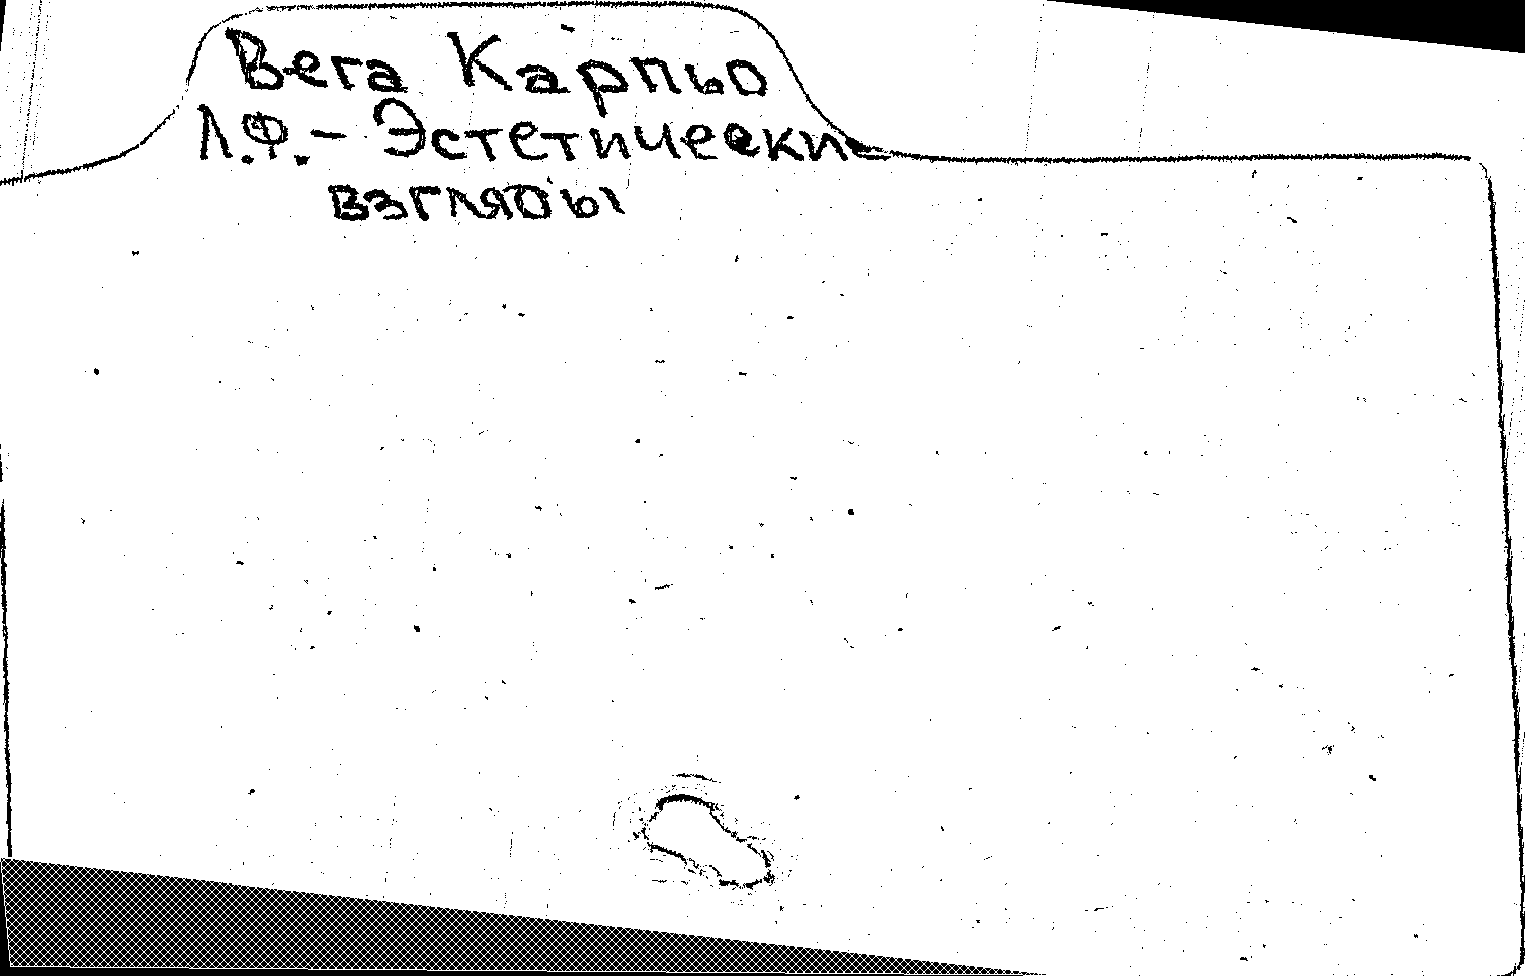 Вега Карпьо
Л.Ф. - Эстетические
взгляды